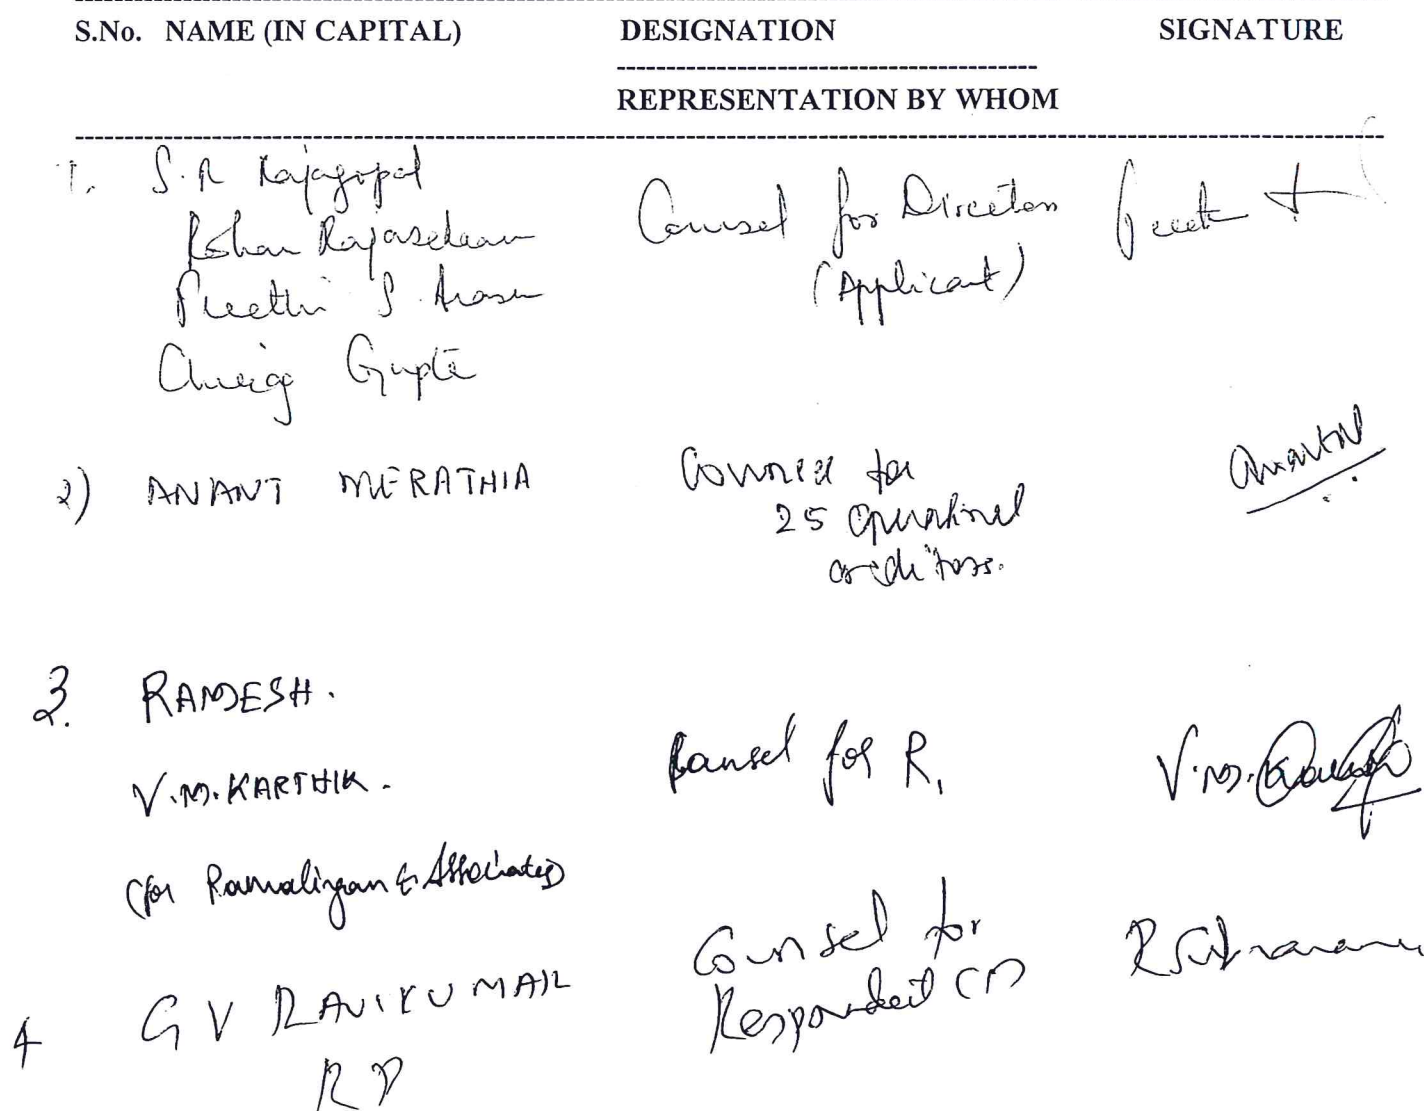 S.No. NAME (IN CAPITAL) DESIGNATION SIGNATURE
REPRESENTATION BY WHOM
1. S.R Rajagopal
Rohan Rajasekaran
Preethi S. Arasu
Anirag Gupta
Counsel for Directors
(Applicant)
2) ANANT MERATHIA
Counsel for
25 operational
creditors.
3. RAMESH.
V.M.KARTHIK.
(for Ramalingam & Associates)
Counsel for R1
V.M.
4 G V RAVIKUMAR
RP
Counsel for
Respondent